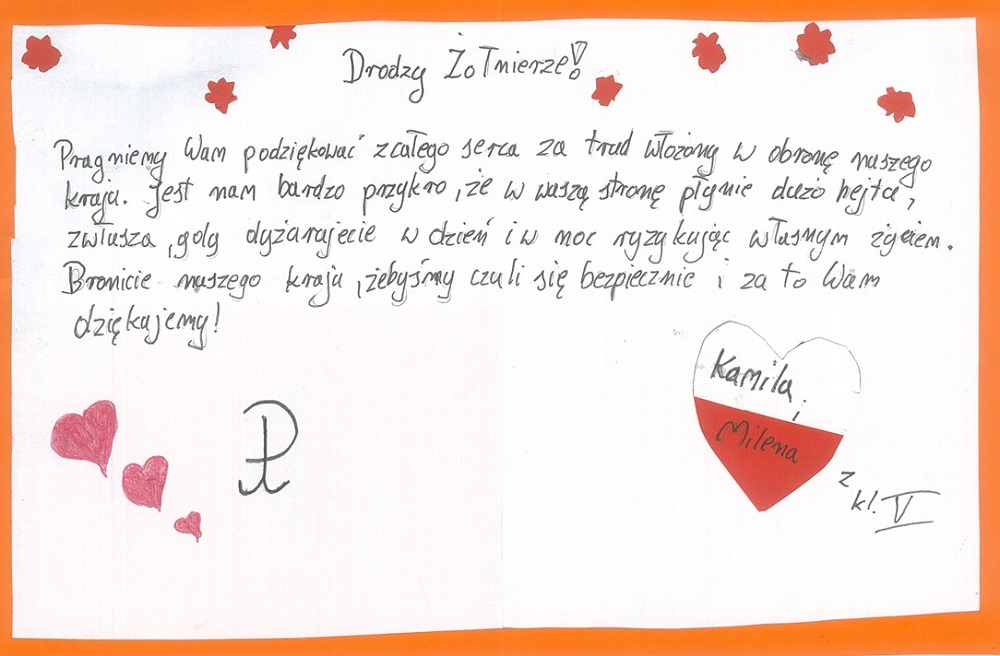 Drodzy Żołnierze!
Pragniemy Wam podziękować z całego serca za trud włożony w obronę naszego
kraju. Jest nam bardzo przykro, że w waszą stronę płynie dużo hejtu,
zwłasza, gdy dyżurujecie w dzień i w noc ryzykując własnym życiem.
Bronicie naszego kraju, żebyśmy czuli się bezpiecznie i za to Wam
dziękujemy!
Kamila i
Milena
z
kl. V